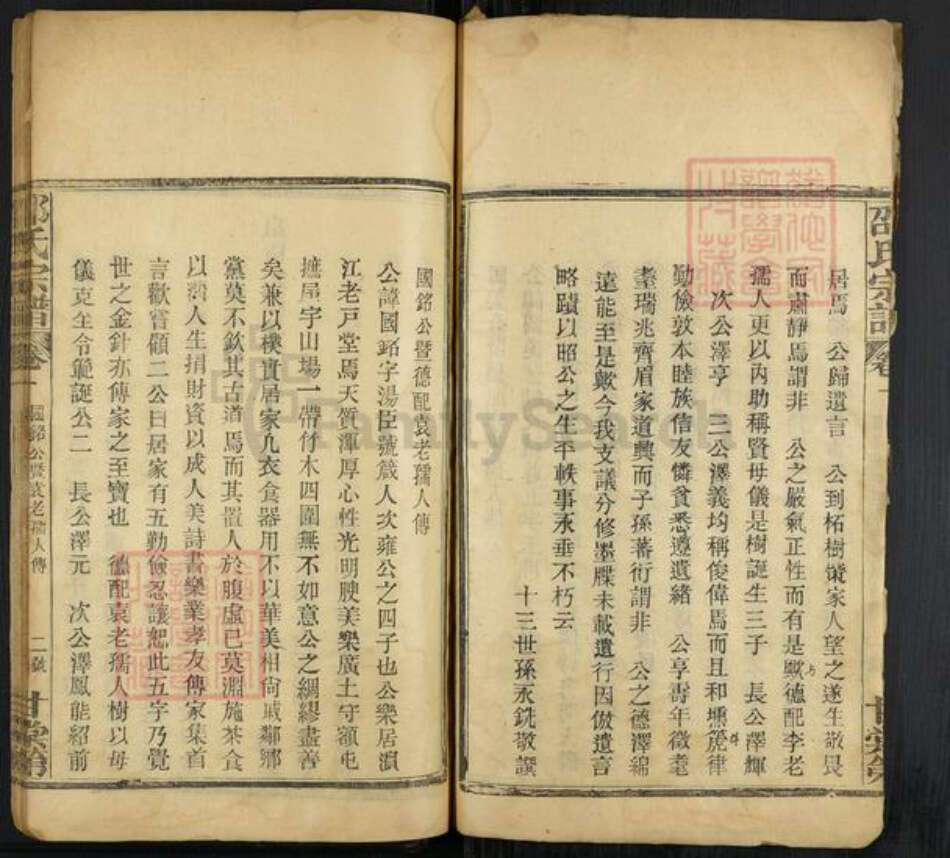 居焉 公歸遺言 公到柘樹 家人望之遂生敬畏
而肅靜焉謂非 公之嚴氣正性而有是歟德配李老
孺人更以內助稱賢母儀是樹誕生三子 長公澤輝
次公澤亨 三公澤義均稱俊偉焉而且和壎篪律
勤儉敦本睦族信友憐貧悉遵遺緒 公亨壽年徵耄
耋瑞兆齊眉家道興而子孫蕃衍謂非 公之德澤綿
遠能至是歟今我支議分修墨牒未載遺行因倣遺言
略蹟以昭公之生平軼事永垂不朽云
十三世孫永銑敬譔
邵氏宗譜 卷一
甘棠第
國銘公暨德配袁老孺人傳
公諱國銘字湯臣號箴人次雍公之四子也公樂居澬
江老戶堂焉天質渾厚心性光明腴美樂廣土守額屯
摭屋宇山場一帶竹木四圍無不如意公之綢繆盡善
矣兼以樸實居家凡衣食器用不以華美相尙戚鄰鄉
黨莫不欽其古道焉而其置人於腹虛己莫淵施茶食
以濟人生捐財資以成人美詩書樂業孝友傳家集首
言歡嘗顧二公曰居家有五勤儉忍讓恕此五字乃覺
世之金針亦傳家之至寶也 德配袁老孺人樹以母
儀克全令範誕公二 長公澤元 次公澤鳳能紹前
邵氏宗譜 卷一 國銘公暨袁老孺人傳 二號 甘棠第
FamilySearch